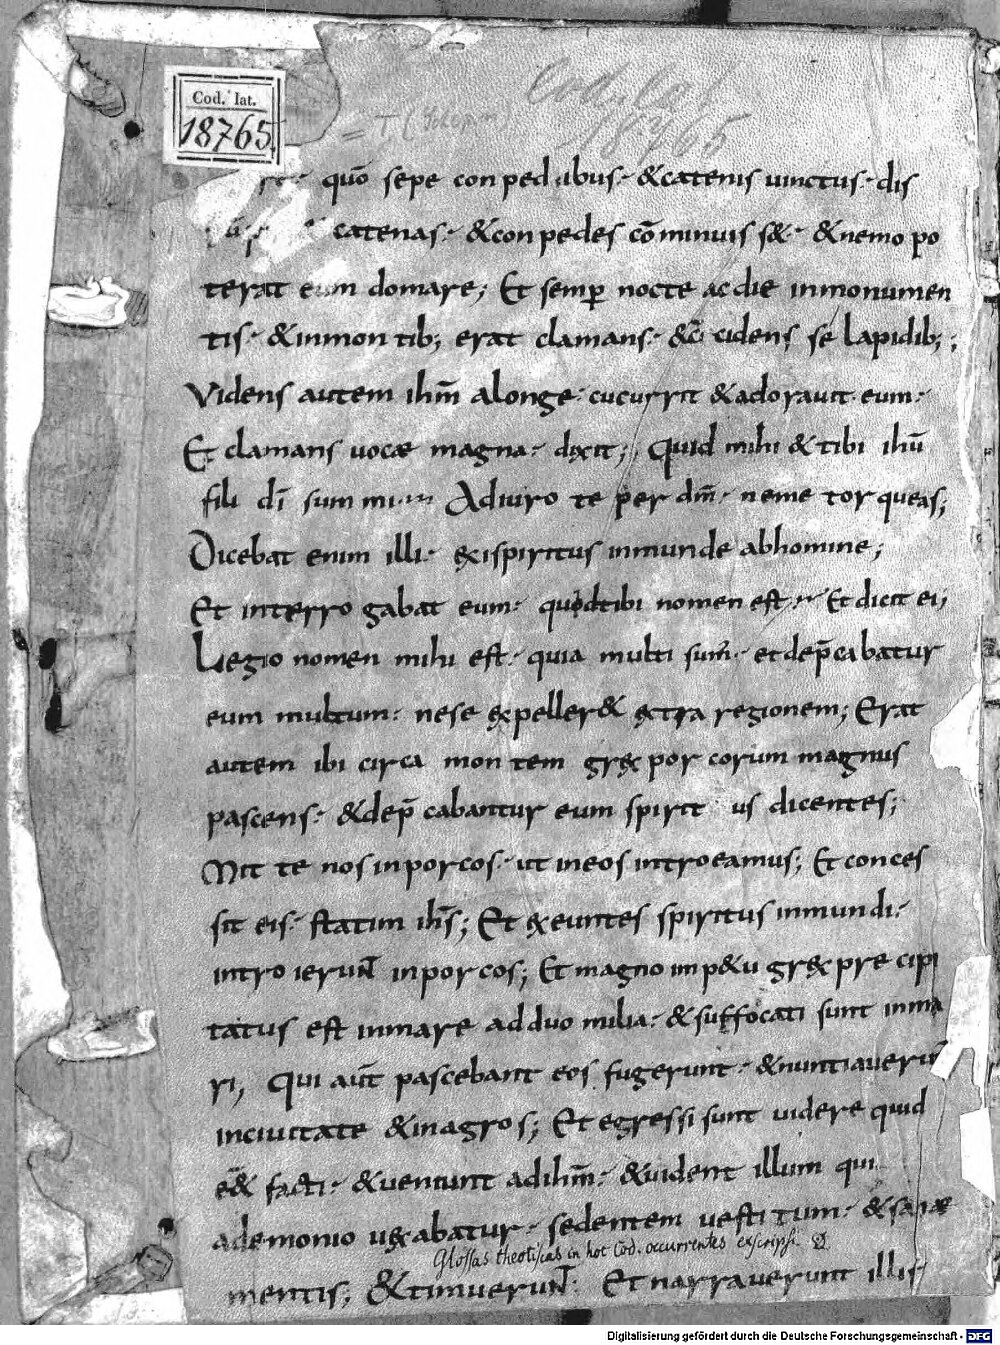 Cod. lat.
18765.
Cod. lat.
18765
quō sepe conpedibus· &catenis uinctus· dis
catenas· &conpedes cōminuis s&· &nemo po
terat eum domare; Et semp nocte acdie inmonumen
tis· &inmontib; erat clamans· &c̄cidens se lapidib;;
Videns autem ihm̄ alonge· cucurrit &adorauit eum·
Et clamans uoce magna· dixit; Quid mihi &tibi ihū
fili dī summi· Adiuro te per dm̄· neme torqueas;
Dicebat enim illi· exispiritus inmunde abhomine;
Et interrogabat eum· quodtibi nomen est· Et dicit ei;
Legio nomen mihi est· quia multi sum̄· etdep̄cabatur
eum multum· nese expeller& extra regionem; Erat
autem ibi circa montem grex porcorum magnus
pascens· &dep̄cabantur eum spiritus dicentes;
Mit te nos inporcos· ut ineos introeamus; Et conces
sit eis· statim ihs̄; Et exeuntes spiritus inmundi·
introierunt inporcos; Et magno imp&u grex precipi
tatus est inmare adduo milia· &suffocati sunt inma
ri; Qui aut̄ pascebant eos fugerunt· &nuntiaverun
inciuitate &inagros; Et egressi sunt uidere quid
ēē& facti· &ueniunt adihm̄· &uident illum qui
ademonio uexabatur· sedentem uestitum· &sane
Glossas theotiscas in hoc Cod. occurrentes exscripsi.
mentis; &timuerunt· Et narraverunt illis
Digitalisierung gefördert durch die Deutsche Forschungsgemeinschaft - DFG